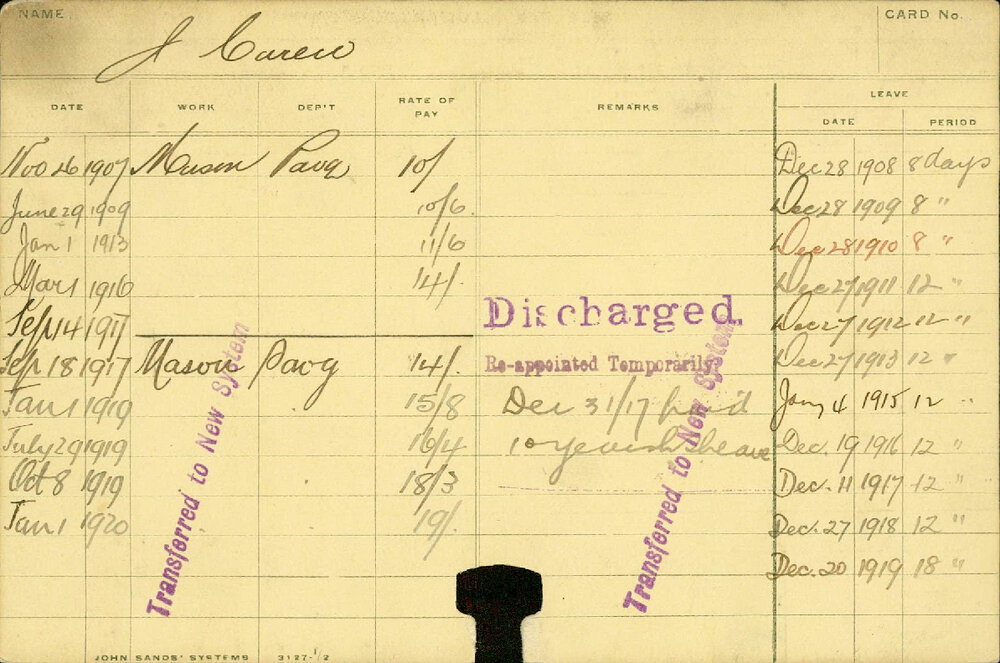 NAME
CARD No.
J Carew
DATE WORK DEP'T RATE OF PAY REMARKS LEAVE
DATE PERIOD
Nov 26 1907 Mason Pavg 10/ Dec 28 1908 8 days
June 29 1909 10/6 Dec 28 1909 8 "
Jan 1 1913 11/6 Dec 28 1910 8 "
Mar 1 1916 14/. Dec 27 1911 12 "
Sept 14 1917 Discharged. Dec 27 1912 12 "
Sep 18 1917 Mason Pavg 14/. Re-appointed Temporarily Dec 27 1913 12 "
Jan 1 1919 15/8 Dec 31/17 paid Jany 4 1915 12 "
July 29 1919 16/4 10 years Dec. 19 1916 12 "
Oct 8 1919 18/3 Dec. 11 1917 12 "
Jan 1 1920 19/. Dec. 27 1918 12 "
Dec. 20 1919 18 "
Transferred to New System
Transferred to New System
JOHN SANDS' SYSTEMS 3127-1/2